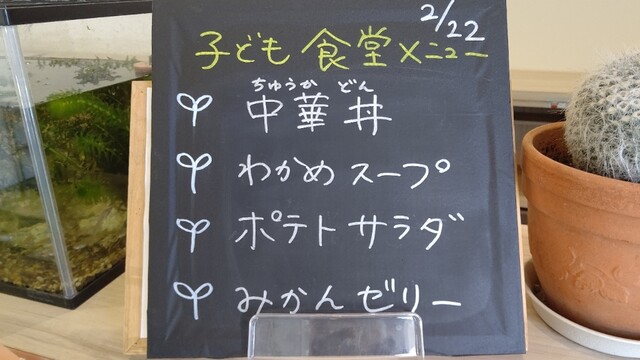 2/22
子ども食堂メニュー
ちゅうか どん
中華丼
わかめスープ
ポテトサラダ
みかんゼリー